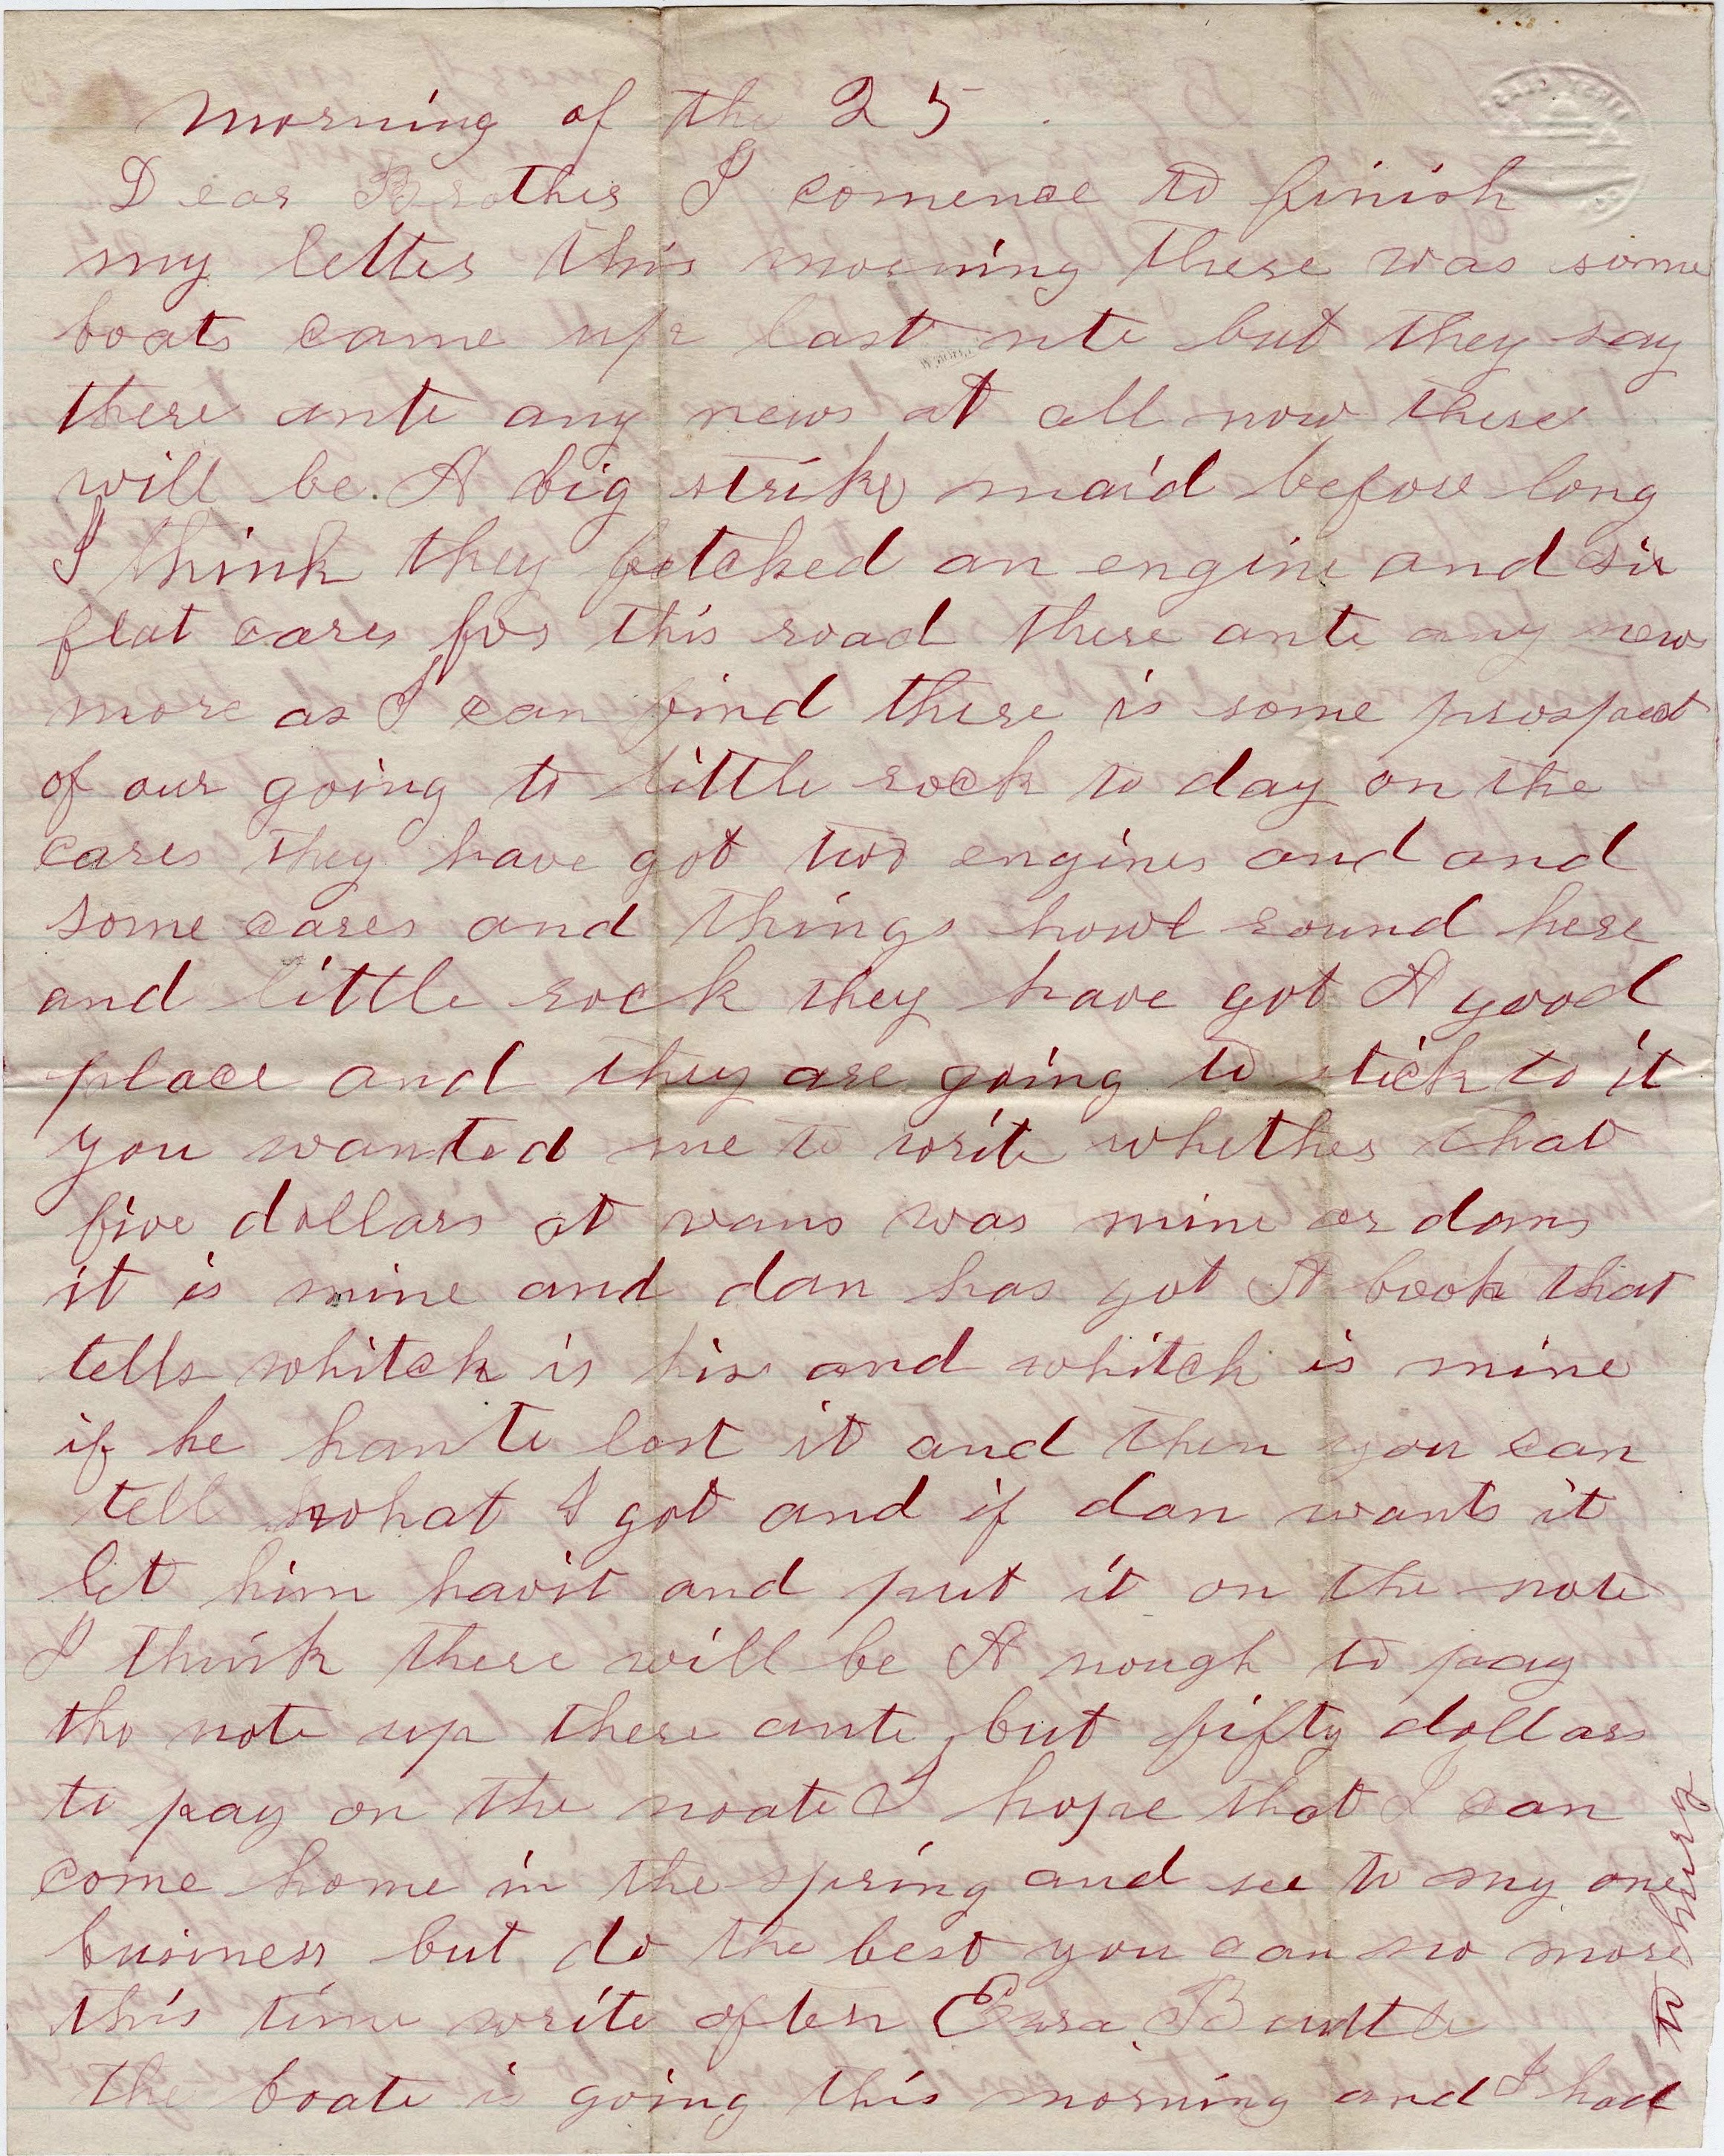 morning of the 25.
Dear Brother I comence to finish
my letter this morning there was some
boats came up last nite but they say
there ante any news at all now there
will be. A big strike maid before long
I think they fetched an engine and six
flat cares for this road there ante any news
more as I can find there is some prospect
of our going to little rock to day on the
cares they have got two engines and and
some cares and things howl round here
and little rock they have got A good
place and they are going to stick to it
you wanted me to write whether that
five dollars at vans was mine or dans
it is mine and dan has got A book that
tells whitch is his and whitch is mine
if he hante lost it and then you can
tell what I got and if dan wants it
let him havit and put it on the note
I think there will be A nough to pay
the note up there ante but fifty dollars
to pay on the noate I hope that I can
come home in the spring and see to my one
business but do the best you can no more
this time write often Ezra
the boate is going this morning and I had
to hurry